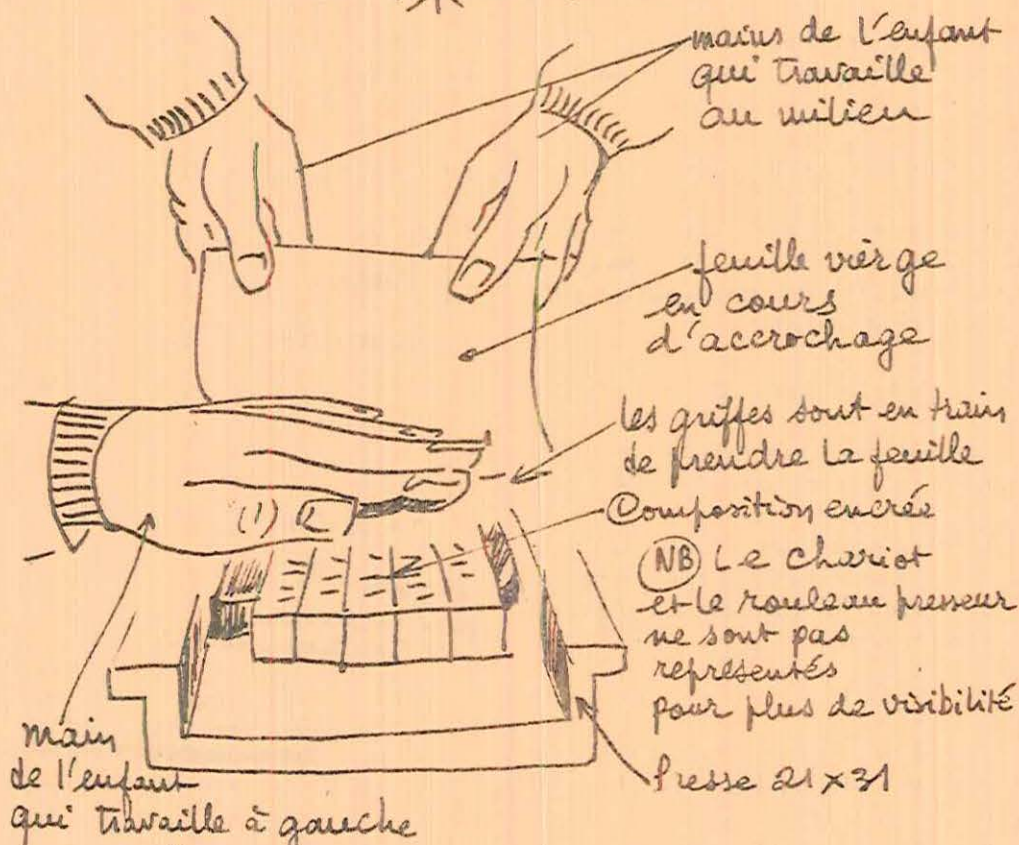 mains de l'enfant
qui travaille
au milieu
feuille vierge
en cours
d'accrochage
les griffes sont en train
de prendre la feuille
Composition encrée
(1)
NB Le chariot
et le rouleau presseur
ne sont pas
représentés
pour plus de visibilité
main
de l'enfant
qui travaille à gauche
Presse 21 x 31